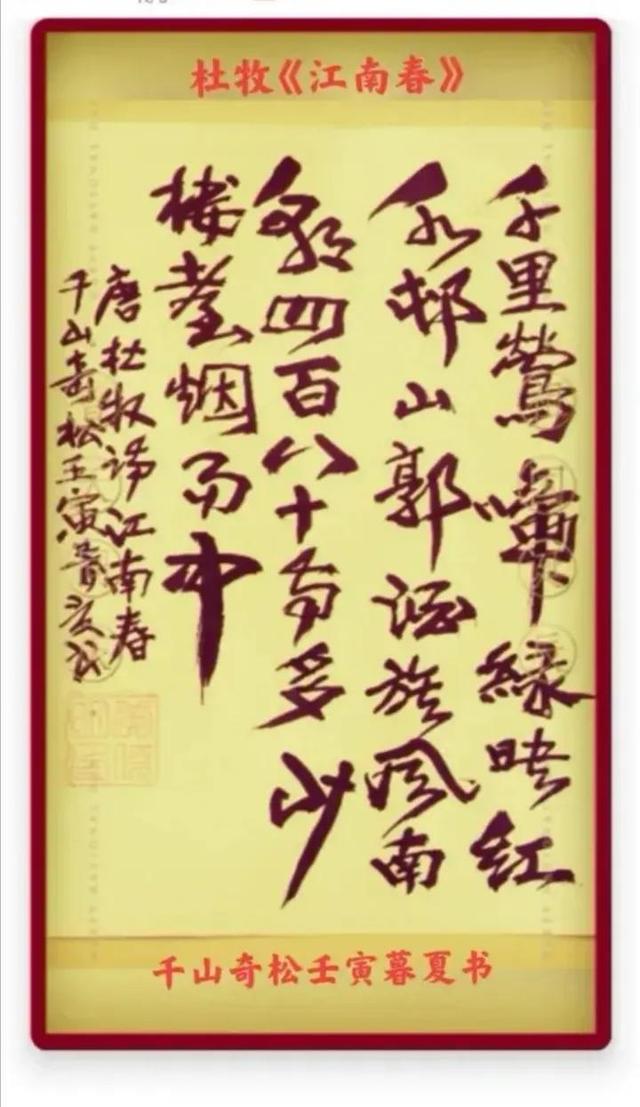 杜牧《江南春》
千里鶯啼緑映红
水邨山郭酒旗风南
朝四百八十寺多少
楼臺烟雨中
唐杜牧诗江南春
千山奇松壬寅暮夏书
千山奇松壬寅暮夏书